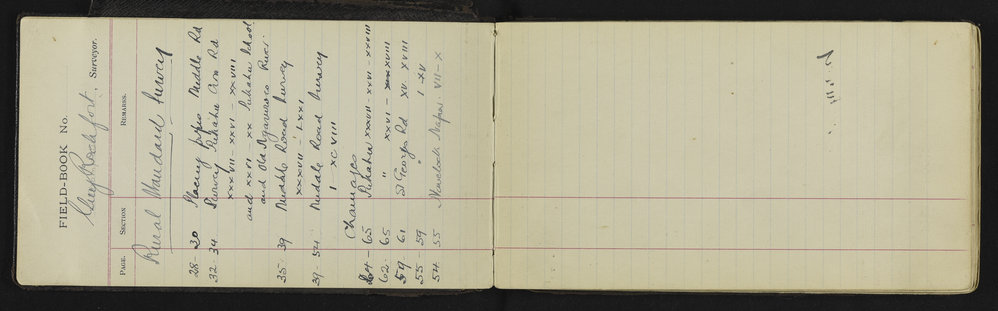 FIELD-BOOK No.
Rochfort, Surveyor.
PAGE. SECTION REMARKS.
Rural Standard Survey
28 - 30 Placing pipes Middle Rd
32 - 34 Survey Pukahu Cross Rd
XXXVII - XXVI - XXVIII
and XXVI - XX Pukahu School
and Old Ngaruroro River
35 - 39 Middle Road Survey
XXXVII - LXXI
39 54 Middle Road Survey
I - XCVIII
Chainages
64 - 65 Pukahu XXXVII - XXVI - XXVIII
62 65 " XXVI - XXVIII
59 61 St Georges Rd XV XVIII
55 - 59 " I - XV
54 55 Havelock Napier VII - X